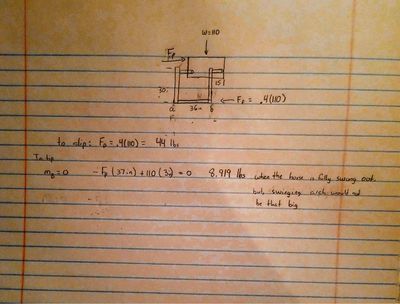 W=110
Fp
30
15
36in
a
F
← Fp = .4(110)
to slip: Fp = .4(110) = 44 lbs
To tip
mB=0 -Fp(37in)+110(3)=0 8.919 lbs when the horse is fully swung out.
but swinging arch would not
be that big